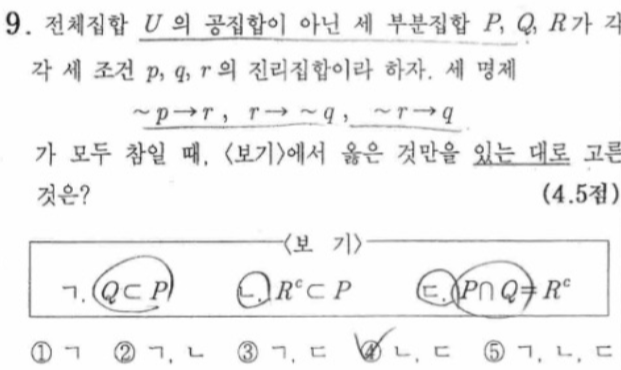 9. 전체집합 U의 공집합이 아닌 세 부분집합 P, Q, R가 각
각 세 조건 p, q, r의 진리집합이라 하자. 세 명제
~p→r, r→~q, ~r→q
가 모두 참일 때, <보기>에서 옳은 것만을 있는 대로 고른
것은? (4.5점)
<보 기>
ㄱ. Q⊂P ㄴ. Rᶜ⊂P ㄷ. P∩Q=Rᶜ
① ㄱ ② ㄱ, ㄴ ③ ㄱ, ㄷ ④ ㄴ, ㄷ ⑤ ㄱ, ㄴ, ㄷ